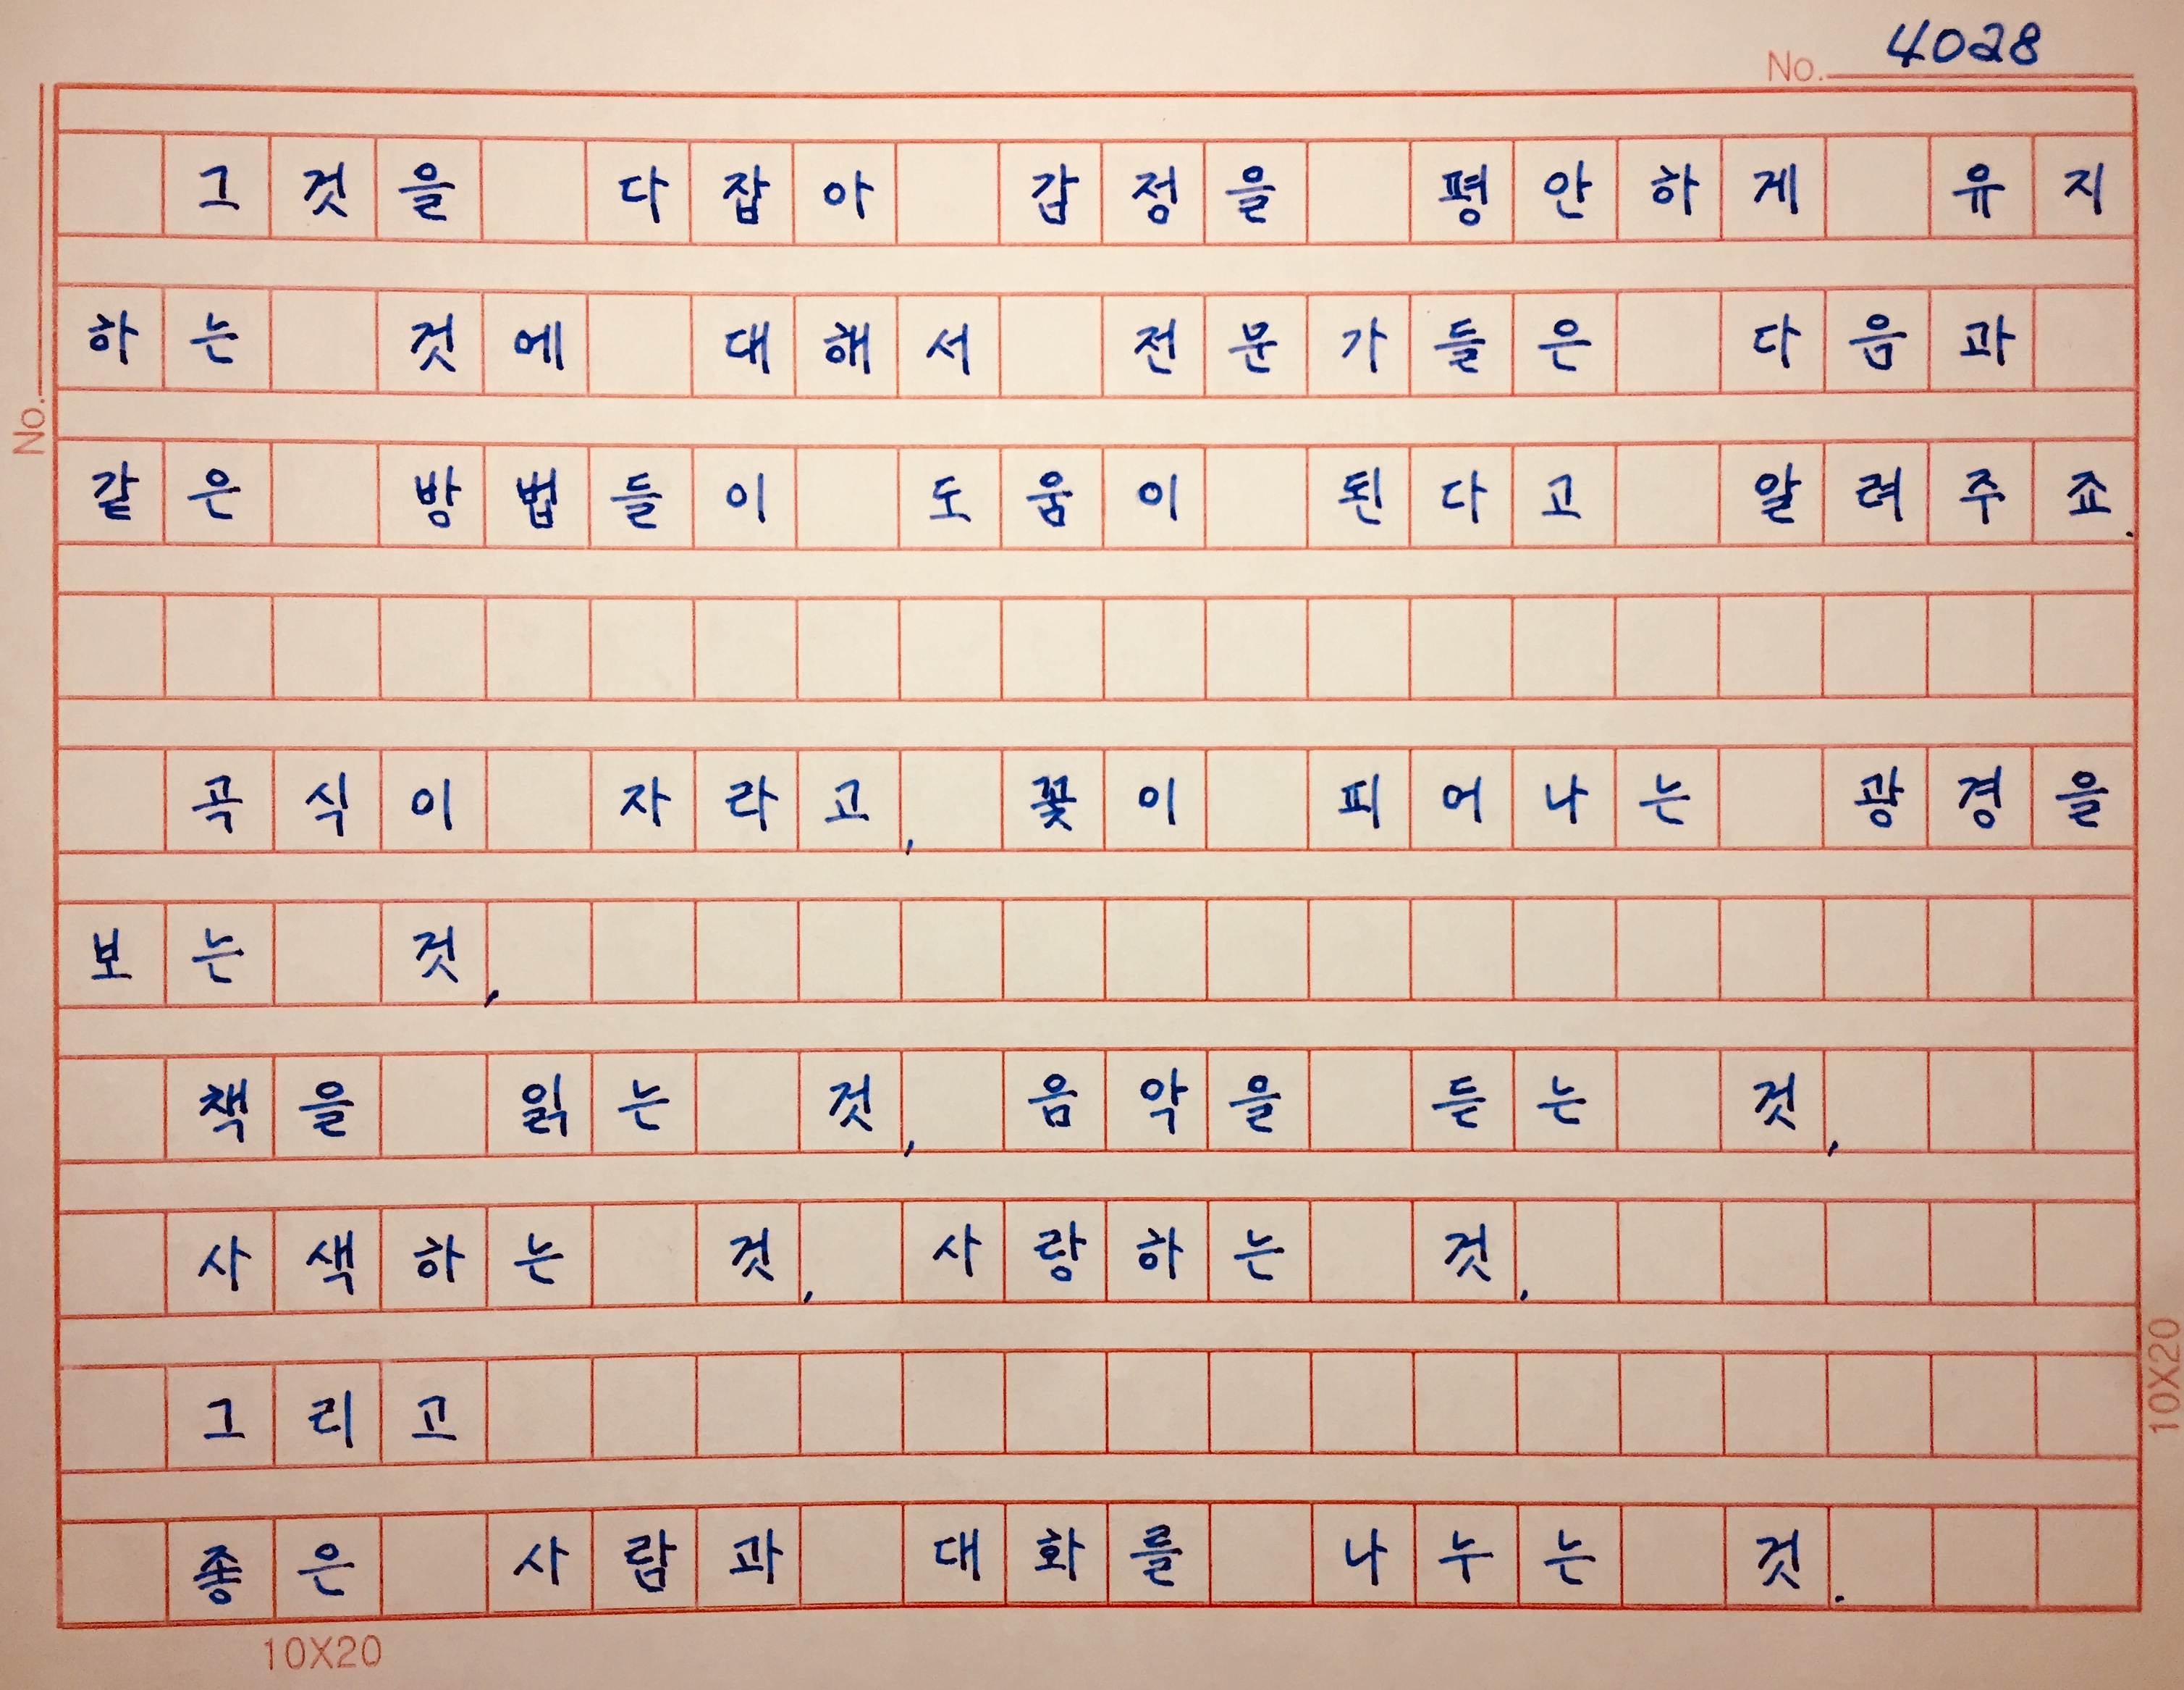 No. 4028
그것을 다잡아 갑정을 평안하게 유지
하는 것에 대해서 전문가들은 다음과
No.
같은 방법들이 도움이 된다고 알려주죠.
곡식이 자라고, 꽃이 피어나는 광경을
보는 것,
책을 읽는 것, 음악을 듣는 것,
사색하는 것, 사랑하는 것,
그리고
10X20
좋은 사람과 대화를 나누는 것.
10X20